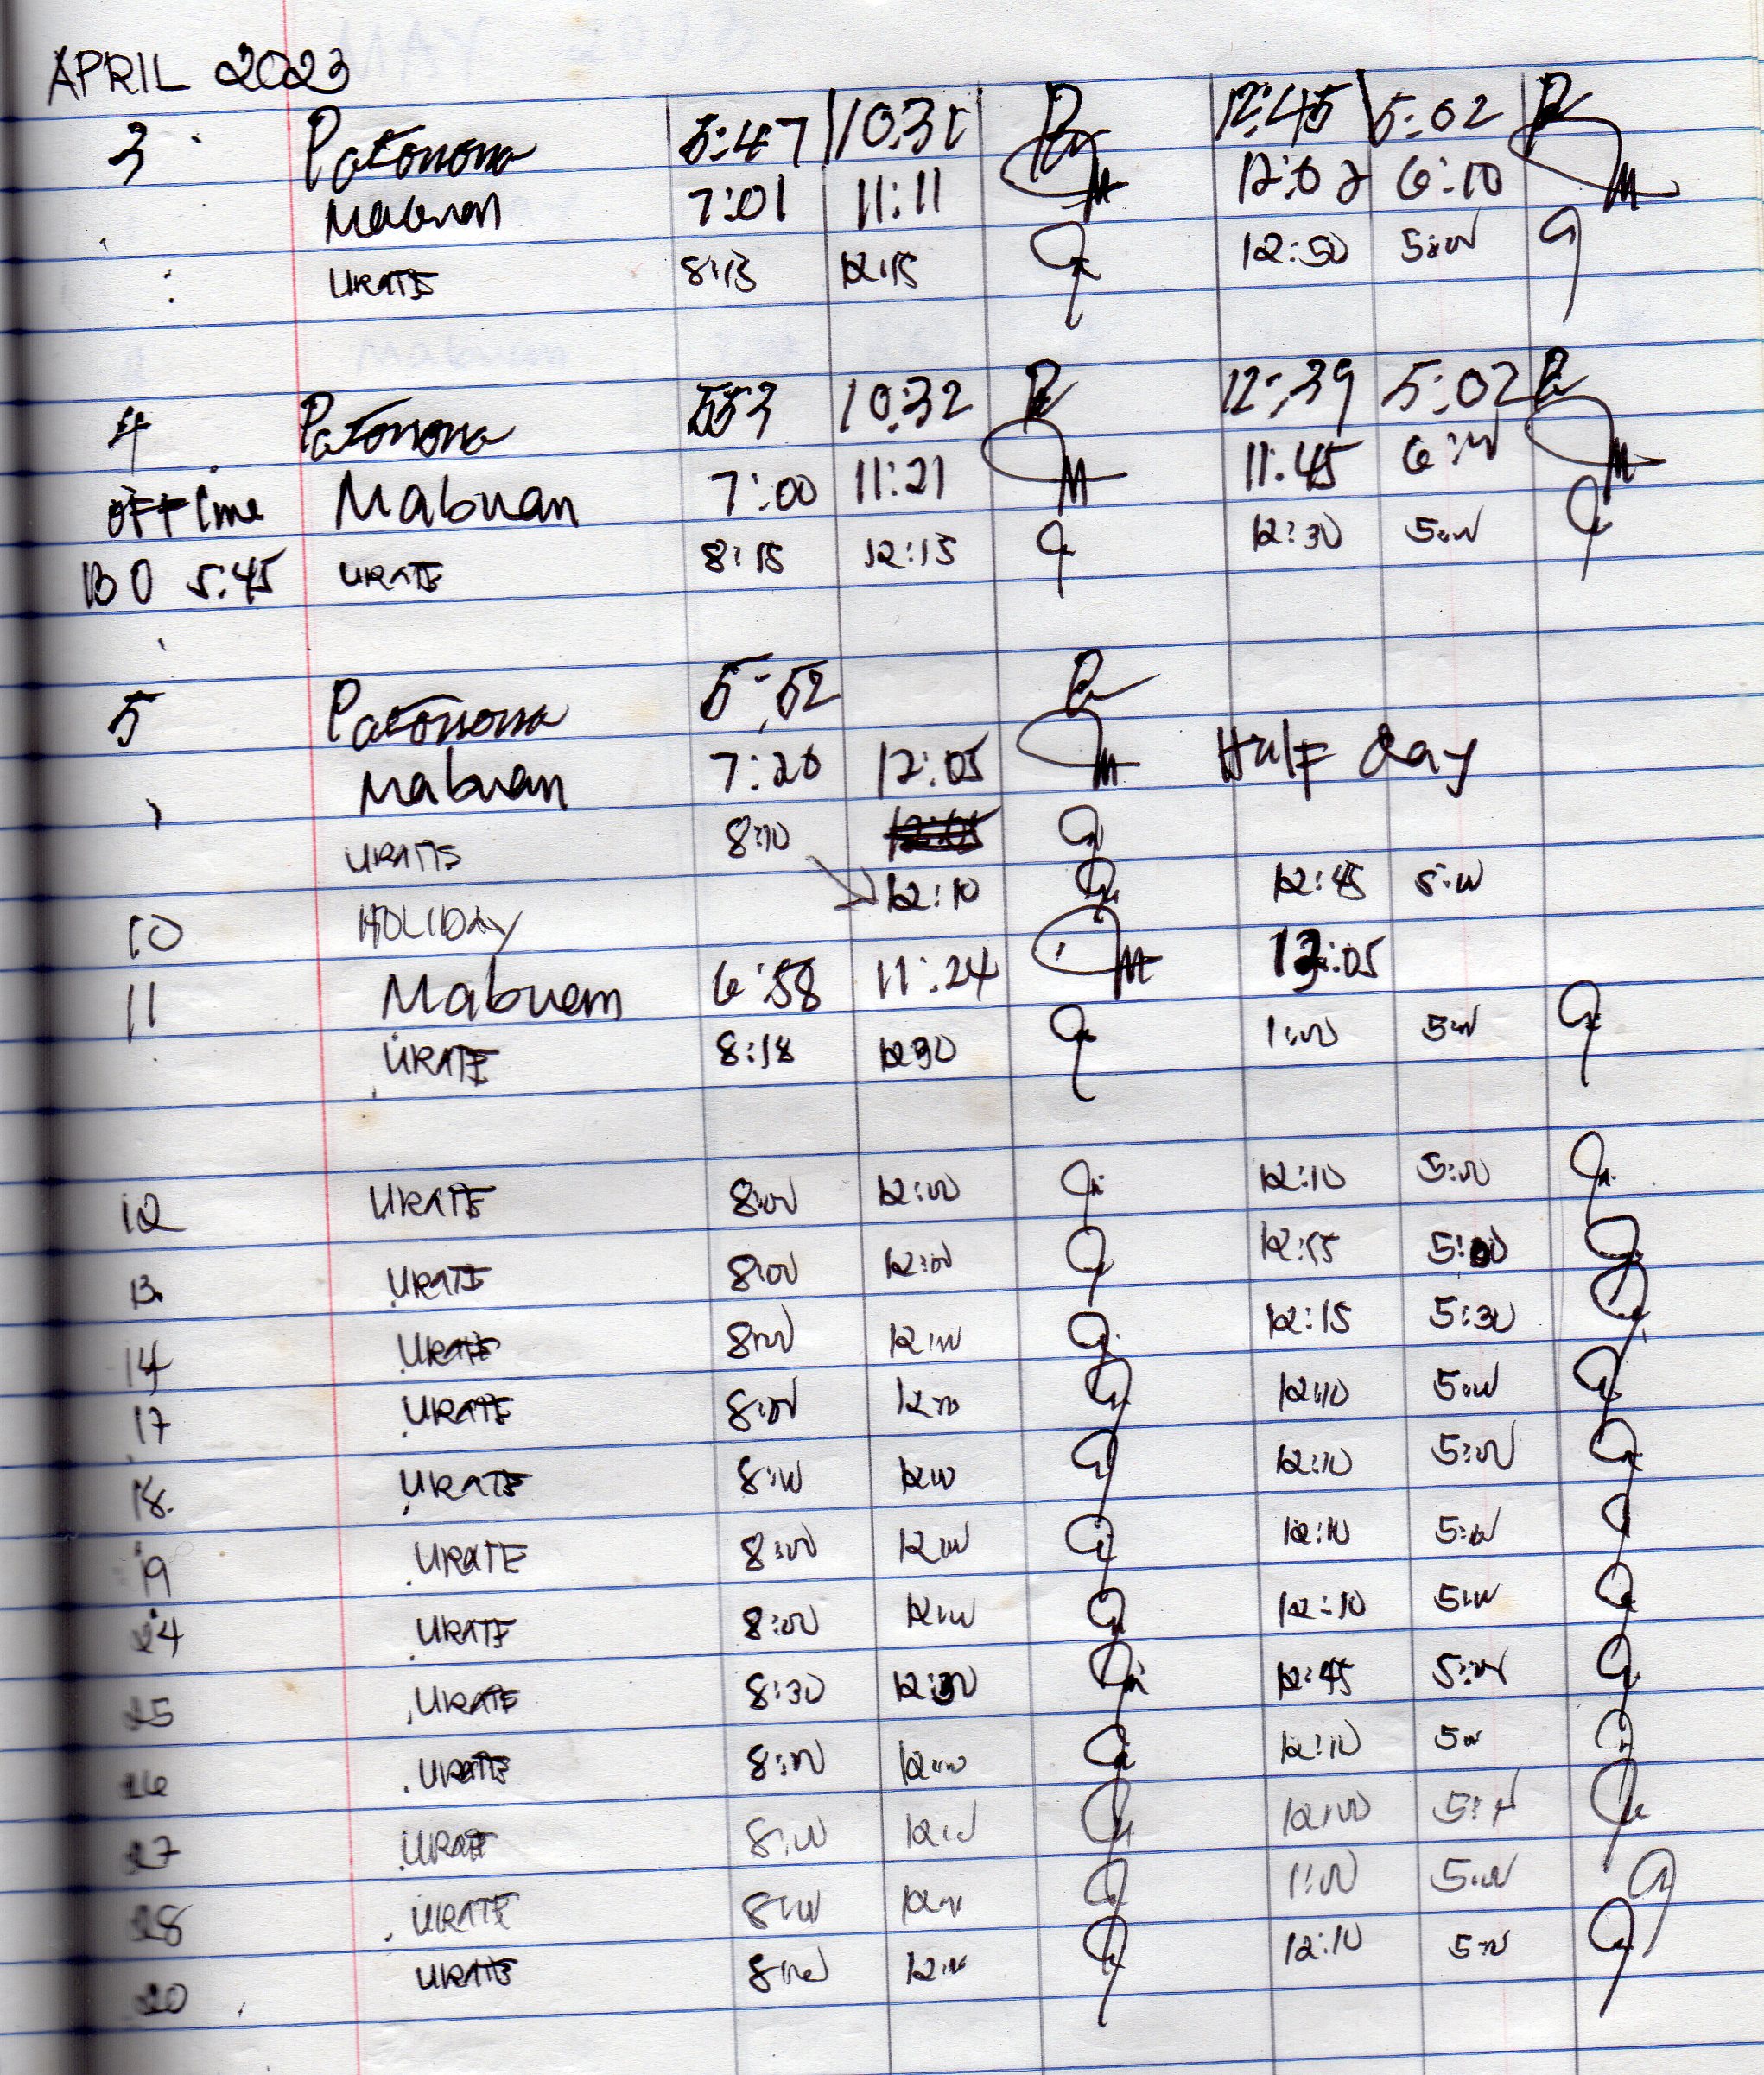 APRIL 2023
3 Patonona 5:47 10:31 12:45 5:02
Mabuan 7:01 11:11 12:02 6:10
URATE 8:13 12:15 12:50 5:00
4 Patonona 5:53 10:32 12:39 5:02
offtime Mabuan 7:00 11:21 11:45 6:00
BO 5:45 URATE 8:15 12:15 12:30 5:00
5 Patonona 5:52
Mabuan 7:20 12:05 Half day
URATE 8:10 12:05
12:10 12:45 5:00
10 HOLIDAY
11 Mabuan 6:58 11:24 12:05
URATE 8:18 12:30 1:00 5:00
12 URATE 8:00 12:00 12:10 5:00
13 URATE 8:00 12:00 12:55 5:00
14 URATE 8:00 12:00 12:15 5:30
17 URATE 8:00 12:00 12:10 5:00
18. URATE 8:00 12:00 12:10 5:00
19 URATE 8:00 12:00 12:10 5:00
24 URATE 8:00 12:00 12:10 5:00
25 URATE 8:30 12:30 12:45 5:00
26 URATE 8:00 12:00 12:10 5:00
27 URATE 8:00 12:00 12:00 5:00
28 URATE 8:00 12:00 1:00 5:00
20 URATE 8:00 12:00 12:10 5:00